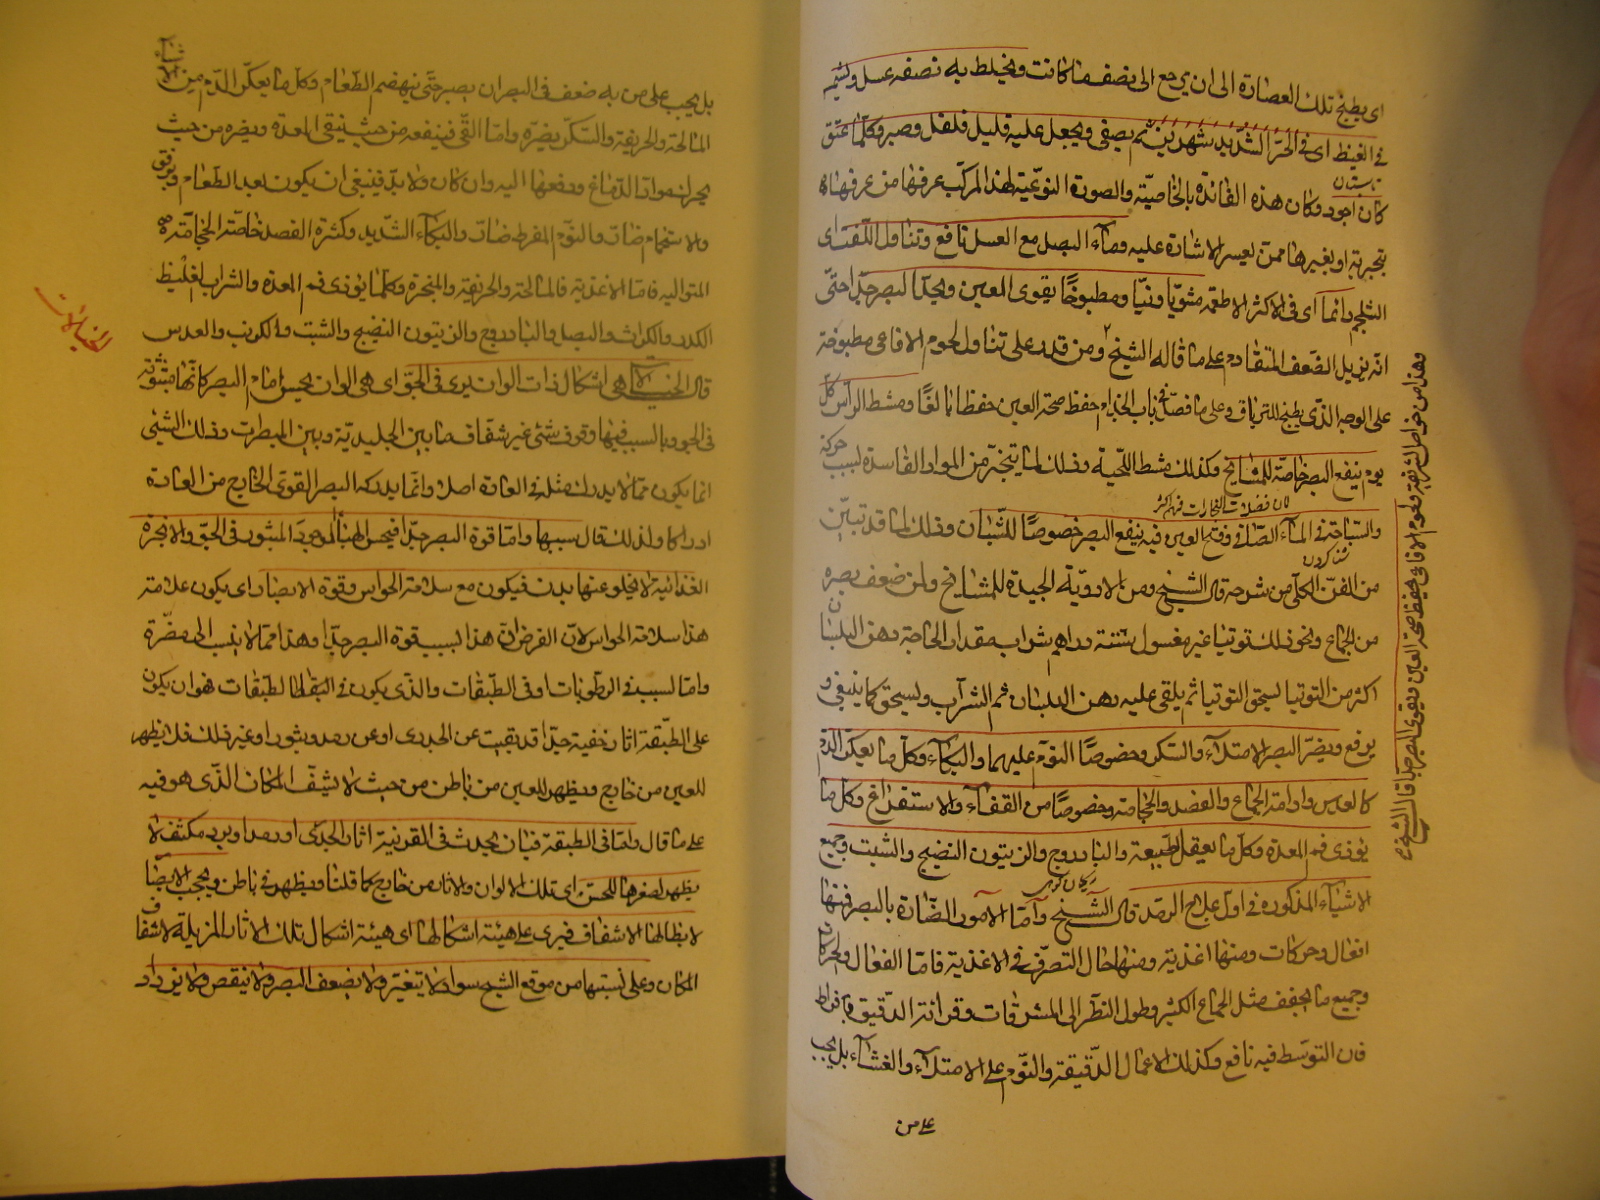 اى يطبخ تلك العصارة الى ان يرجع الى نصف ما كانت ويخلط به نصفه عسل ويشمس
فى القيظ اى فى الحر الشديد شهرين ثم يصفى ويجعل عليه قليل فلفل وصبر وكلما عتق
كان اجود وكان هذه الفائدة بالخاصية والصورة النوعية لهذا المركب عرفها من عرفها
بتجربة او بغيرها ممن يعسر الاشارة عليه وماء البصل مع العسل نافع وتناول اللفت اى
الشلجم دائما اى فى الاكثر الاطعمة مشويا ونيا ومطبوخا يقوى العين ويحد البصر جدا حتى
انه يزيل الضعف المتقادم على ما قاله الشيخ ومن قدر على تناول لحوم الافاعى مطبوخة
على الوجه الذى يطبخ للترياق وعلى ما فصل فى باب الجذام حفظ صحة العين حفظا بالغا ومشط الرأس كل
يوم ينفع البصر خاصة للمشايخ وكذلك مشط اللحية وذلك لما يتبخر من المواد الفاسدة بسبب حركة
والسباحة فى الماء الصافى وفتح العين فيه ينفع البصر خصوصا للشبان وذلك لما قد تبين
من الفن الكلى من شرحه قال الشيخ ومن الادوية الجيدة للمشايخ ولمن ضعف بصره
من الجماع ونحو ذلك توتيا غير مغسول ستة دراهم شراب مقدار الحاجة دهن البلسان
اكثر من التوتيا يسحق التوتيا ثم يلقى عليه دهن البلسان ثم الشراب ويسحق كما ينبغى و
يرفع ويضر البصر الامتلاء والسكر وخصوصا النوم عليهما والبكاء وكل ما يعكر الدم
كالعدس وادامة الجماع والفصد والحجامة وخصوصا من القفاء والاستفراغ وكل ما
يؤذى فم المعدة وكل ما يعقل الطبيعة والبادروج والزيتون النضيج والشبت وجميع
الاشياء المذكورة فى اول علاج الرمد قال الشيخ وأما الامور الضارة بالبصر فمنها
افعال وحركات ومنها اغذية ومنها حال التصرف فى الاغذية فاما الفعال والحركات
وجميع ما يجفف مثل الجماع الكثير وطول النظر الى المشرقات وقرائة الدقيق بافراط
فان التوسط فيه نافع وكذلك الاعمال الدقيقة والنوم على الامتلاء والغشاء بل يجب
على من
وهذا من خواص الشريفة ولحوم الافاعى يحفظ صحة العين ويقوى البصر جدا قال الشيخ
بل يجب على من به ضعف فى البصر ان يصبر حتى ينهضم الطعام وكل ما يعكر الدم من الاشياء
المالحة والحريفة والسكر يضره واما القئ فينفعه من حيث ينقى المعدة ويضره من حيث
يحرك مواد الدماغ ودفعها اليه وان كان ولا بد فينبغى ان يكون بعد الطعام وبرفق
والاستحمام ضار والنوم المفرط ضار والبكاء الشديد وكثرة الفصد خاصة الحجامة
المتوالية فاما الاغذية فالمالحة والحريفة والمبخرة وكلما يؤذى فم المعدة والشراب الغليظ
الكدر والكراث والبصل والبادروج والزيتون النضيج والشبت والكرنب والعدس
قال الخيالات هى اشكال ذات الوان يرى فى الجو اى هى الوان يحس امام البصر كانها مبثوثة
فى الجو والسبب فيها وقوف شئ غير شفاف ما بين الجليدية وبين المبصرات وذلك الشئ
انما يكون مما لا يدرك مثله فى العادة اصلا وانما يدركه البصر القوى الخارج من العادة
ادراكا ولذلك قال سببها واما قوة البصر جدا فيحس الهباء الموجود المبثور فى الجو والابخرة
الغذائية لا يخلو عنها بدن فيكون مع سلامة الحواس وقوة الابصار اى يكون علامة
هذا سلامة الحواس لان الفرض ان هذا لسبب قوة البصر جدا وهذا مما لا ينسب الى مضرة
واما لسبب فى الرطوبات او فى الطبقات والذى يكون فى الطبقات هو ان يكون
على الطبقة اثار خفية جدا قد بقيت عن الجدرى او عن رمد وبثور او غير ذلك فلا يظهر
للعين من خارج ويظهر للعين من باطن من حيث لا يشف المكان الذى هو فيه
على ما قال واما فى الطبقة فبان يحدث فى القرنية اثار الجدرى او رمد او برد مكثف لا
يظهر لصغرها للحس اى تلك الالوان والاثار من خارج كما قلنا ويظهر فى باطن ويحجب الابصار
لابطالها الاشفاف فيرى على هيئة اشكالها اى هيئة اشكال تلك الاثار المزيلة لاشفاف
المكان وعلى نسبتها من موقع الشبح سواد لا يتغير ولا يضعف البصر ولا ينقص ولا يزداد
الخيالات